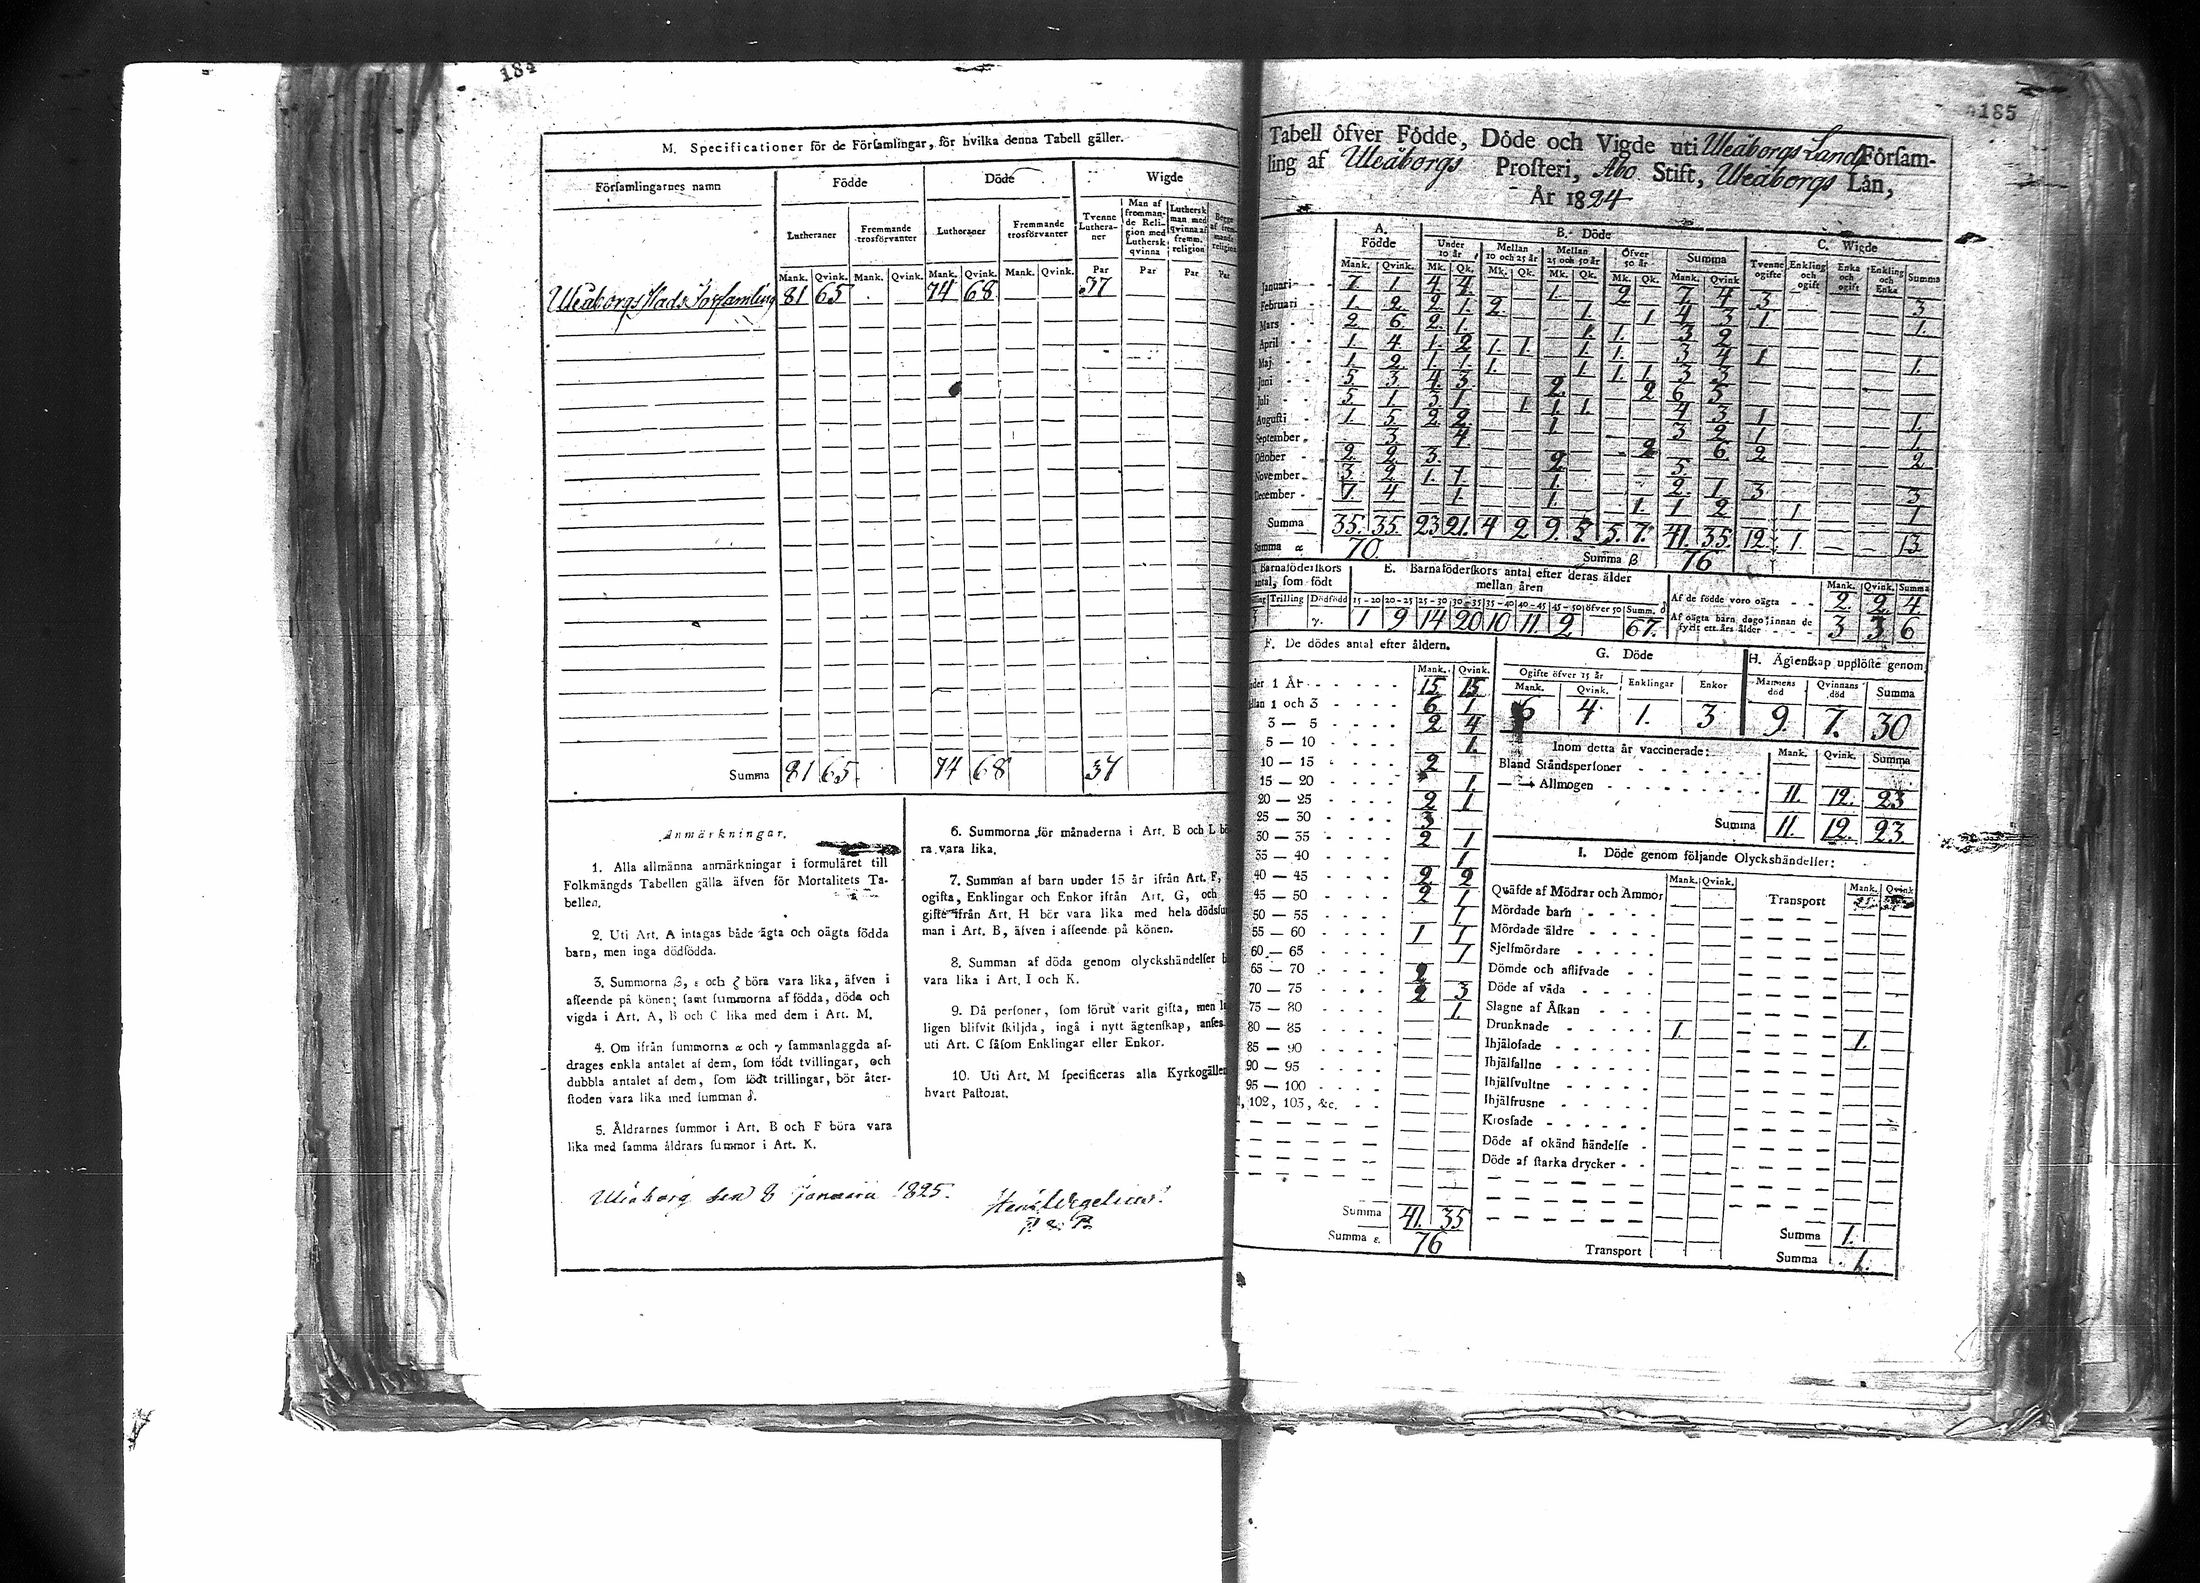 184
M. Specificationer för de Församlingar, för hvilka denna Tabell gäller.
Församlingarnes namn Födde Döde Wigde
Lutheraner Fremmande trosförvanter Lutheraner Fremmande trosförvanter Tvenne Lutheraner Man af frommande Religion med Luthersk qvinna Luthersk man med qvinna af fremm. religion
Mank. Qvink. Mank. Qvink. Mank. Qvink. Mank. Qvink. Par Par Par Par
Uleåborgs Stads Församling 81 65 74 68 37
Summa 81 65 74 68 37
Anmärkningar.
1. Alla allmänna anmärkningar i formuläret till
Folkmängds Tabellen gälla äfven för Mortalitets Ta-
bellen.
2. Uti Art. A intagas både ägta och oägta födda
barn, men inga dödfödda.
3. Summorna β, ε och ζ böra vara lika, äfven i
afseende på könen; samt summorna af födda, döda och
vigda i Art. A, B och C lika med dem i Art. M.
4. Om ifrån summorna α och γ sammanlaggda af-
drages enkla antalet af dem, som födt tvillingar, och
dubbla antalet af dem, som födt trillingar, bör åter-
stoden vara lika med summan δ.
5. Åldrarnes summor i Art. B och F böra vara
lika med samma åldrars summor i Art. K.
6. Summorna för månaderna i Art. B och L bö
ra vara lika.
7. Summan af barn under 15 år ifrån Art. F,
ogifta, Enklingar och Enkor ifrån Art. G, och
gifte ifrån Art. H bör vara lika med hela dödssum
man i Art. B, äfven i afseende på könen.
8. Summan af döda genom olyckshändelser b
vara lika i Art. I och K.
9. Då personer, som förut varit gifta, men
ligen blifvit skiljda, ingå i nytt ägtenskap, anses
uti Art. C såsom Enklingar eller Enkor.
10. Uti Art. M specificeras alla Kyrkogällen
hvart Pastorat.
Uleåborg den 8 Januarii 1825.
185
Tabell öfver Födde, Döde och Vigde uti Uleåborgs Lands Försam-
ling af Uleåborgs Prosteri, Åbo Stift, Uleåborgs Län,
År 1824
A. Födde B. Döde C. Wigde
Under 10 år Mellan 10 och 25 år Mellan 25 och 50 år Öfver 50 år Summa Tvenne ogifte Enkling och ogift Enka och ogift Enkling och Enka Summa
Mank. Qvink. Mk. Qk. Mk. Qk. Mk. Qk. Mk. Qk. Mank. Qvink
Januari 7 1 4 4 1. 2 7 4 3 3
Februari 1. 2 2 1. 2 1. 1 4 3 1. 1.
Mars 2 6 2 1. 1. 1. 3 2
April 1. 4 1. 2 1. 1. 1. 1. 3 4 1 1.
Maj 1. 2 1. 1. 1. 1. 1. 1. 3 3
Juni 5 3 4 3 2 2 6 5
Juli 5 1 3 1 1. 1. 1. 4 3 1 1.
Augusti 1. 5 2 2 1. 3 2 1 1.
September 3 4 2 6 2 2
October 2 2 3. 2 5.
November 3 2 1. 1. 1. 2. 1 3 3
December 7 4 1. 1. 1. 1 2 1 1
Summa 35. 35. 23 21. 4 2 9. 5 5. 7. 41. 35. 12. 1. 13
Summa α 70. Summa β 76
Barnaföderskors antal, som födt
E. Barnaföderskors antal efter deras ålder mellan åren
Trilling Dödfödd 15—20 20—25 25—30 30—35 35—40 40—45 45—50 öfver 50 Summ. δ
γ. 1 9 14 20 10 11. 2 67.
Mank. Qvink. Summa
Af de födde voro oägta 2 2 4
Af oägta barn dogo innan de fyllt ett års ålder 3 3 6
F. De dödes antal efter åldern.
Mank. Qvink.
1 År 15 15
1 och 3 6 1
3 — 5 2 4
5 — 10 1.
10 — 15 2
15 — 20 1.
20 — 25 2 1
25 — 30 3
30 — 35 2 1
35 — 40 1
40 — 45 2 2
45 — 50 2 1
50 — 55 1.
55 — 60 1 1
60 — 65 1
65 — 70 2
70 — 75 2 3
75 — 80 1.
80 — 85
85 — 90
90 — 95
95 — 100
102, 103, &c.
Summa 41. 35
Summa ε. 76
G. Döde
Ogifte öfver 15 år Enklingar Enkor
Mank. Qvink.
6 4 1. 3
H. Ägtenskap upplöste genom
Mannens död Qvinnans död Summa
9. 7. 30
Inom detta år vaccinerade: Mank. Qvink. Summa
Bland Ståndspersoner
— Allmogen 11. 12. 23
Summa 11. 12. 23
I. Döde genom följande Olyckshändelser:
Mank. Qvink. Mank. Qvink
Quäfde af Mödrar och Ammor Transport
Mördade barn
Mördade äldre
Sjelfmördare
Dömde och aflifvade
Döde af våda
Slagne af Åskan
Drunknade 1.
Ihjälosade 1.
Ihjälfallne
Ihjälsvultne
Ihjälfrusne
Krossade
Döde af okänd händelse
Döde af starka drycker
Summa 1.
Transport Summa 1.